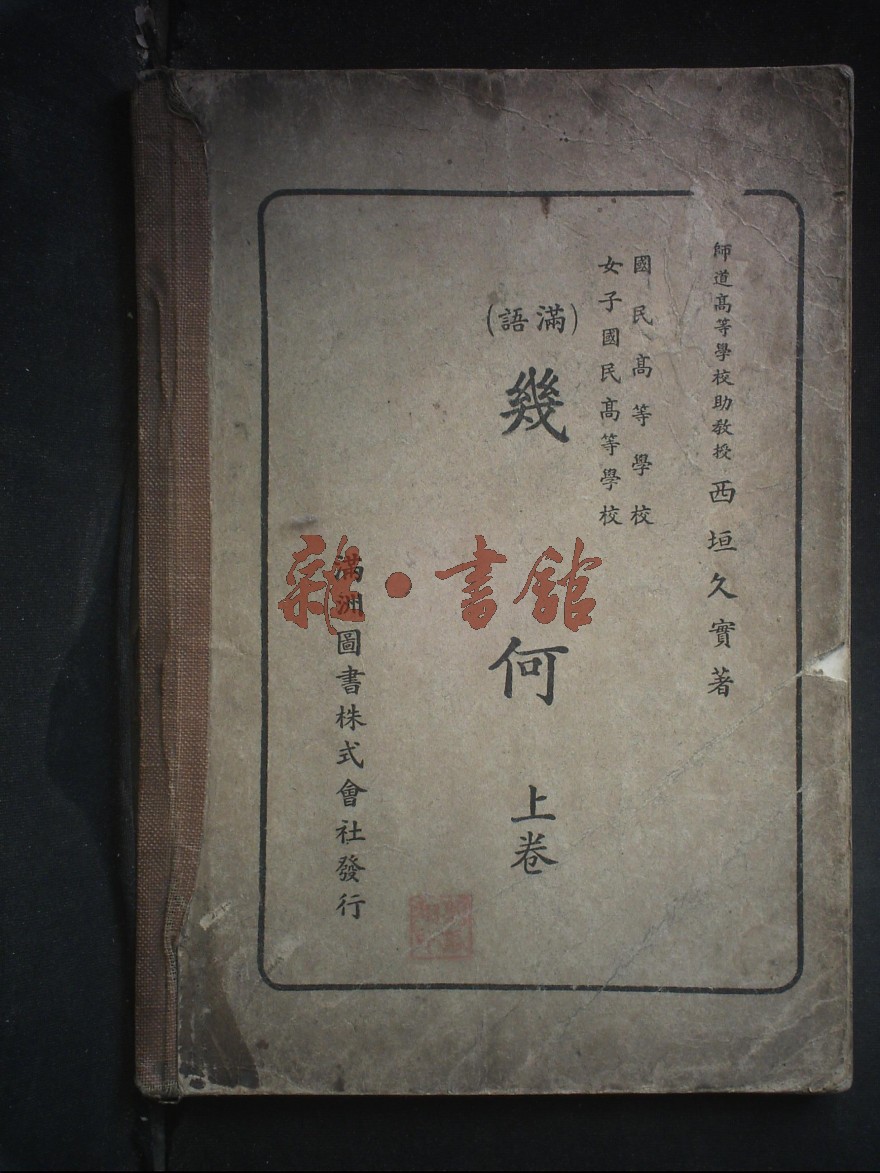 師道高等學校助教授 西垣久實著
國民高等學校
女子國民高等學校
(滿語)
幾何 上卷
滿洲圖書株式會社發行
雜·書館